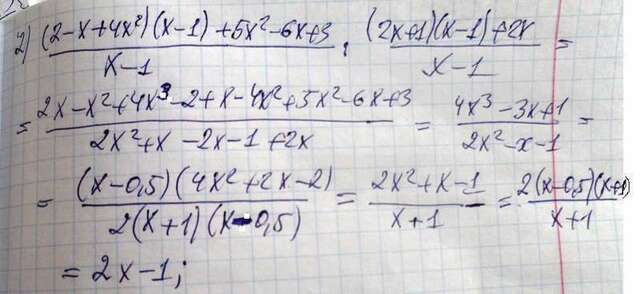 2) ((2-x+4x²)(x-1)+5x²-6x+3)/(x-1) : ((2x+1)(x-1)+2x)/(x-1) =
= (2x-x²+4x³-2+x-4x²+5x²-6x+3)/(2x²+x-2x-1+2x) = (4x³-3x+1)/(2x²-x-1) =
= ((x-0,5)(4x²+2x-2))/(2(x+1)(x-0,5)) = (2x²+x-1)/(x+1) = (2(x-0,5)(x+1))/(x+1)
= 2x-1;